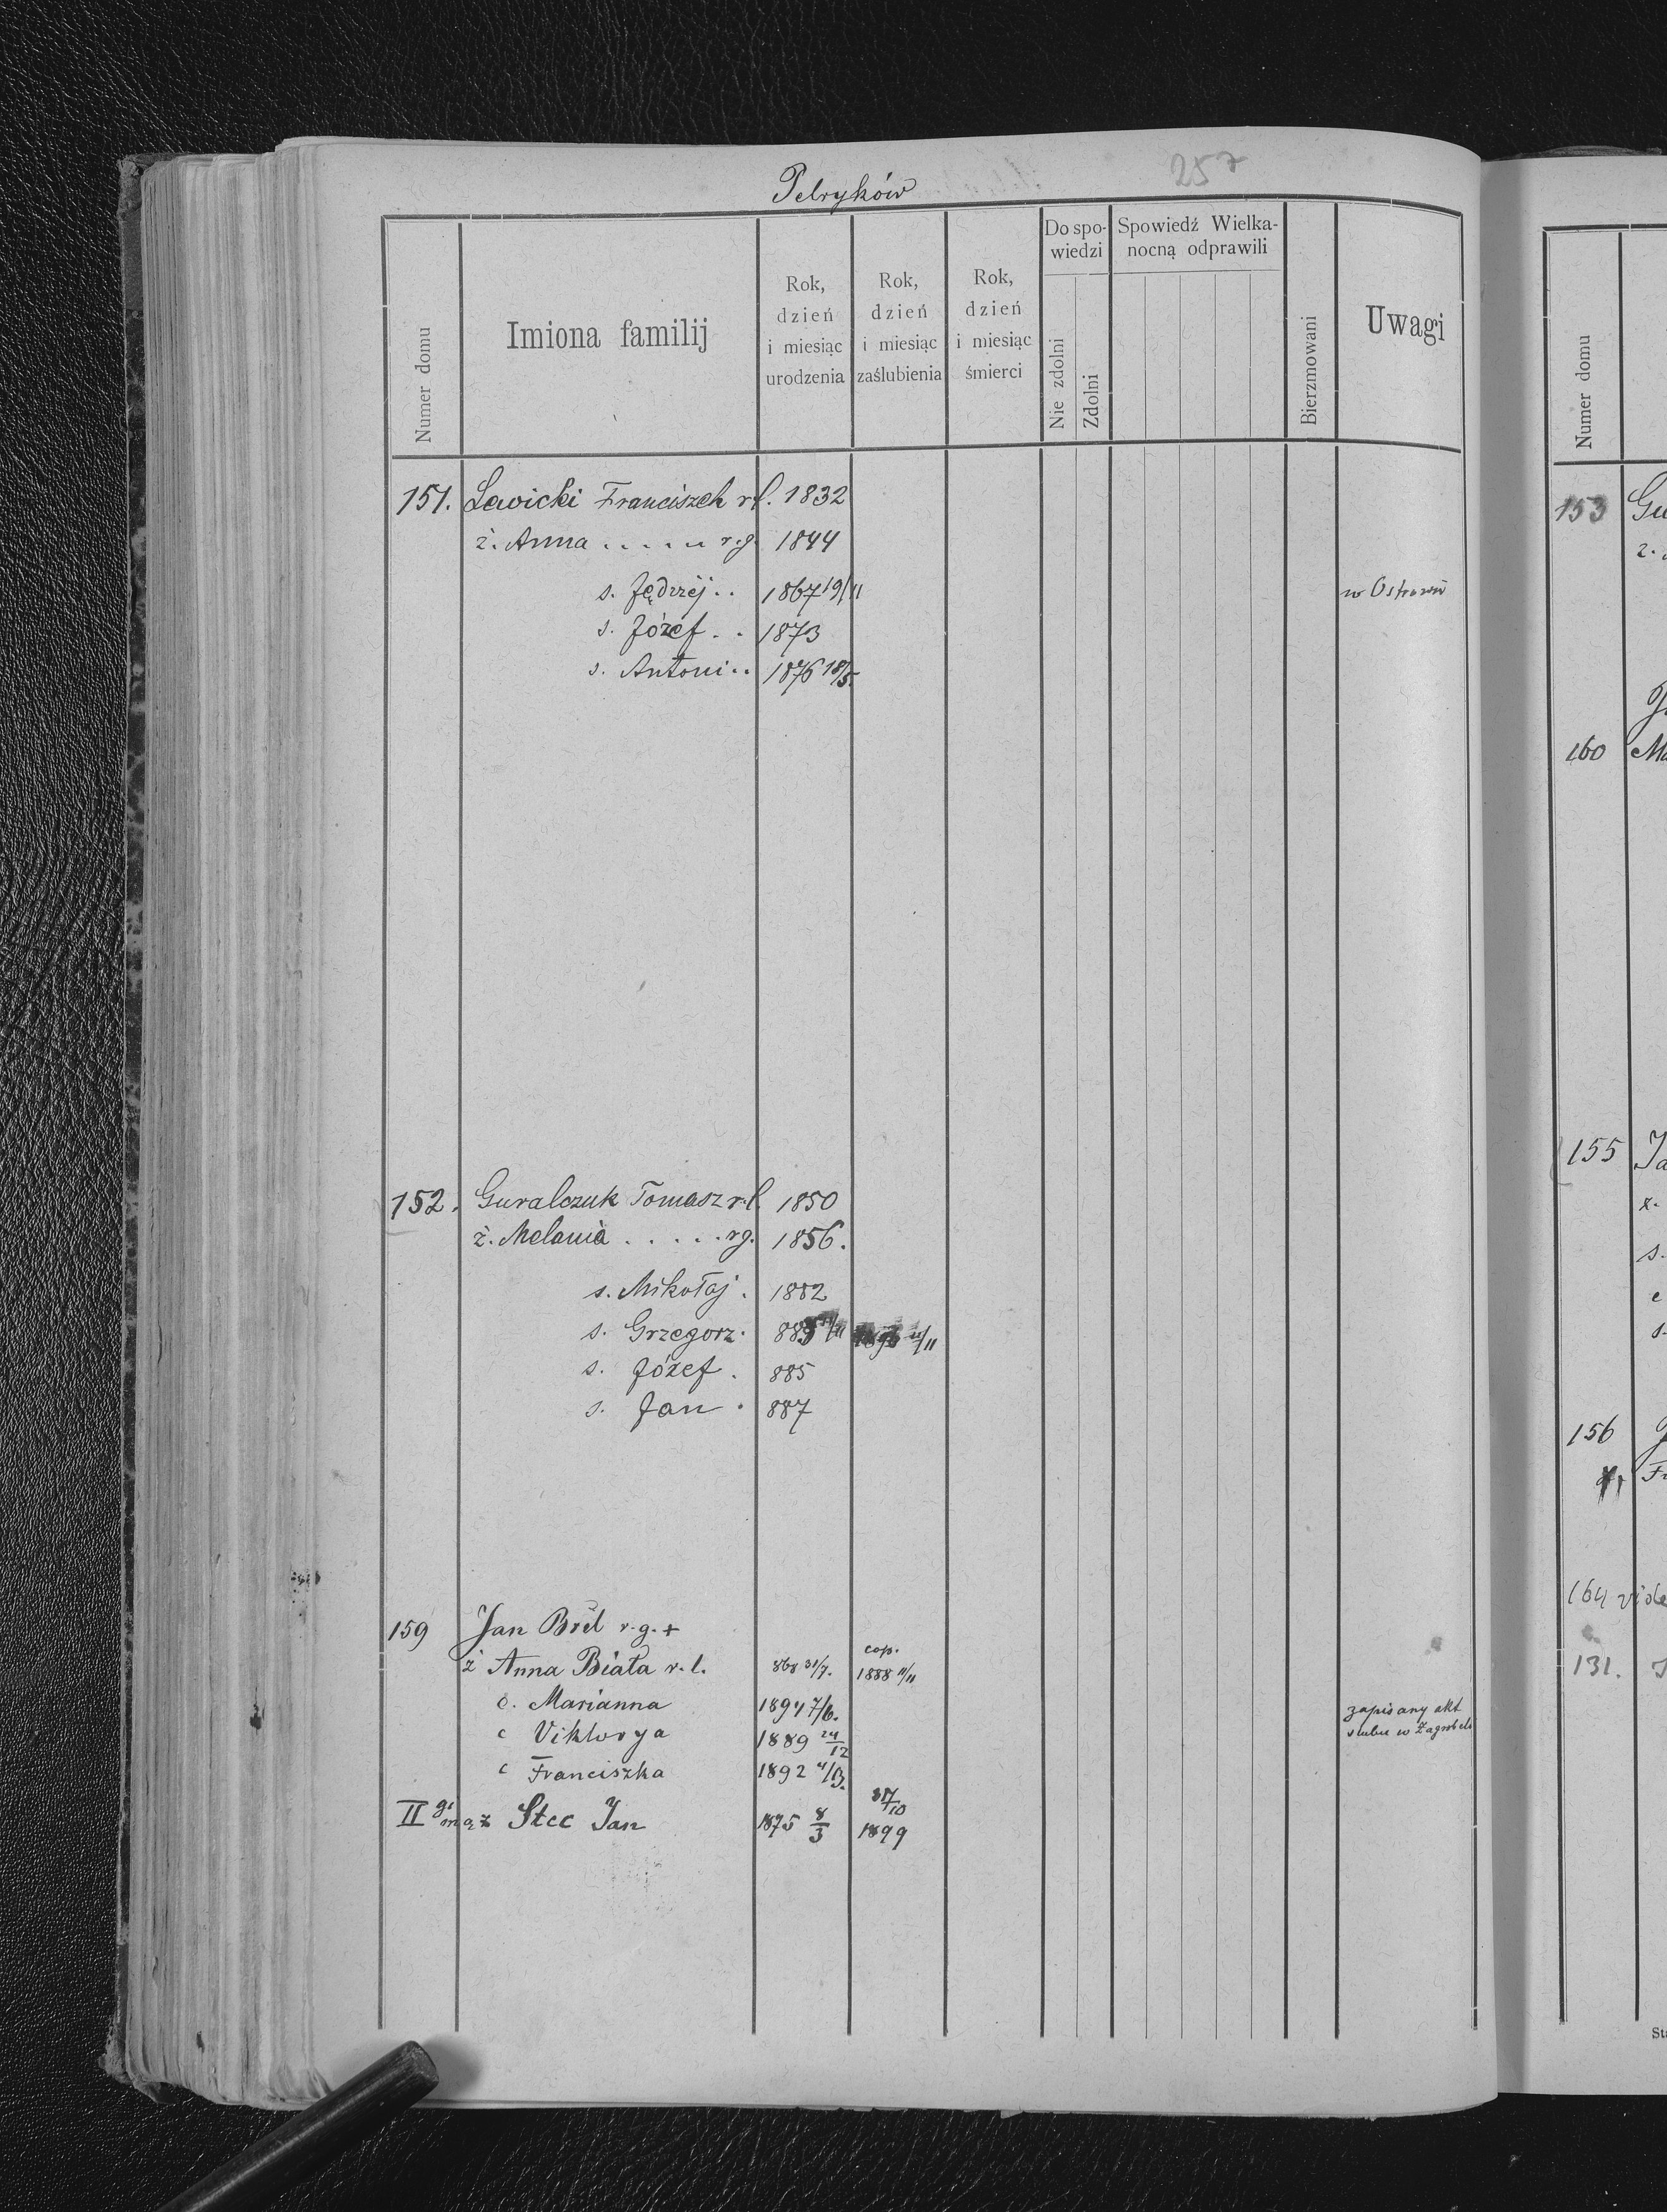 257
Petryków
Numer domu
Imiona familij
Rok, dzień i miesiąc urodzenia
Rok, dzień i miesiąc zaślubienia
Rok, dzień i miesiąc śmierci
Do spowiedzi
Nie zdolni
Zdolni
Spowiedź Wielkanocną odprawili
Bierzmowani
Uwagi
151. Lewicki Franciszek r.l. 1832
ż. Anna . . . . . r.g. 1844
s. Jędrzej . . 1867 19/11 w Ostrowie
s. Józef . . 1873
s. Antoni . . 1876 18/5.
152. Guralczuk Tomasz r.l. 1850
ż. Melania . . . . . rg. 1856.
s. Mikołaj . 1882
s. Grzegorz . 885 11/11
s. Józef . 885
s. Jan . 887
159 Jan Brel r.g. +
ż Anna Biała r.l. 868 31/7. cop. 1888 11/11
c. Marianna 1894 7/6. zapisany akt
c Viktorya 1889 24/12 slubu w Zagrobeli
c Franciszka 1892 4/3.
II gi mąż Stec Jan 1875 8/3 31/10 1899
Numer domu
153
160
155
156
164 vide
131.